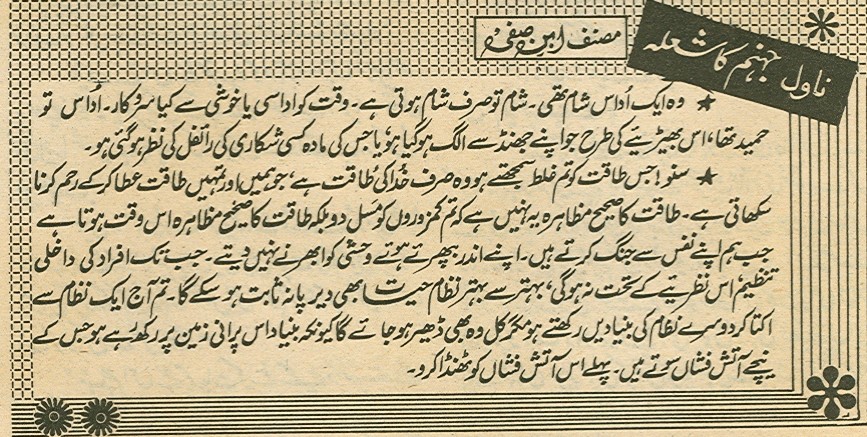 ناول جہنم کا شعلہ
مصنف ابن صفی
★ وہ ایک اُداس شام تھی۔ شام تو صرف شام ہوتی ہے۔ وقت کو اداسی یا خوشی سے کیا سروکار۔ اُداس تو
حمید تھا، اس بھیڑیئے کی طرح جو اپنے جھنڈ سے الگ ہوگیا ہو، یا جس کی مادہ کسی شکاری کی رائفل کی نظر ہوگئی ہو۔
★ سنو! جس طاقت کو تم غلط سمجھتے ہو وہ صرف خُدا کی طاقت ہے، جو ہمیں اور تمہیں طاقت عطا کر کے رحم کرنا
سکھاتی ہے۔ طاقت کا صحیح مظاہرہ یہ نہیں ہے کہ تم کمزوروں کو مَسل دو بلکہ طاقت کا صحیح مظاہرہ اس وقت ہوتا ہے
جب ہم اپنے نفس سے جنگ کرتے ہیں۔ اپنے اندر بپھرے ہوئے وحشی کو ابھرنے نہیں دیتے۔ جب تک افراد کی داخلی
تنظیم اس نظریئے کے تحت نہ ہوگی، بہتر سے بہتر نظام حیات بھی دیرپا نہ ثابت ہو سکے گا۔ تم آج ایک نظام سے
اکتا کر دوسرے نظام کی بنیادیں رکھتے ہو مگر کل وہ بھی ڈھیر ہو جائے گا کیونکہ بنیاد اس پرانی زمین پر رکھ رہے ہو جس کے
نیچے آتش فشاں سوتے ہیں۔ پہلے اس آتش فشاں کو ٹھنڈا کرو۔